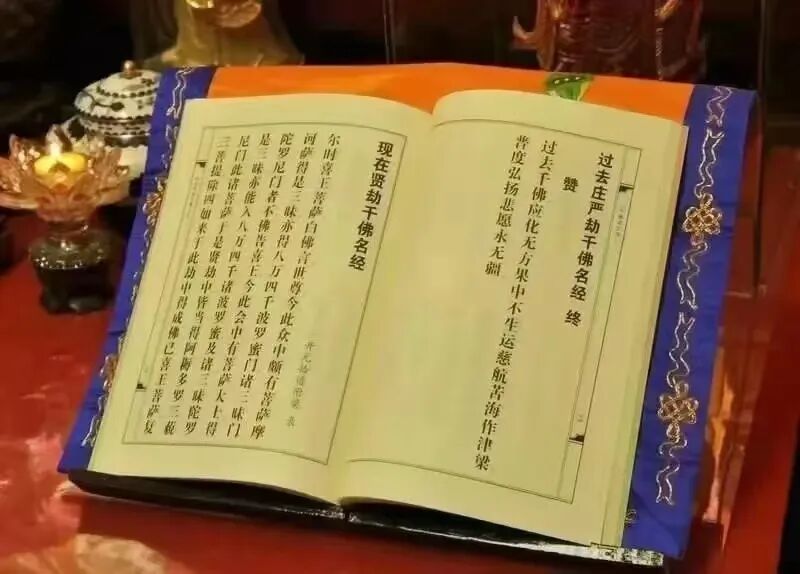 过去庄严劫千佛名经 终
赞
过去千佛应化无方果中不生运慈航苦海作津梁
普度弘扬悲愿永无疆
现在贤劫千佛名经
开元拾遗附梁录
尔时喜王菩萨白佛言世尊今此众中颇有菩萨摩
诃萨得是三昧亦得八万四千波罗蜜门诸三昧门
陀罗尼门者不佛告喜王今此会中有菩萨大士得
是三昧亦能入八万四千诸波罗蜜及诸三昧陀罗
尼门此诸菩萨于是贤劫中皆当得阿耨多罗三藐
三菩提除四如来于此劫中得成佛已喜王菩萨复